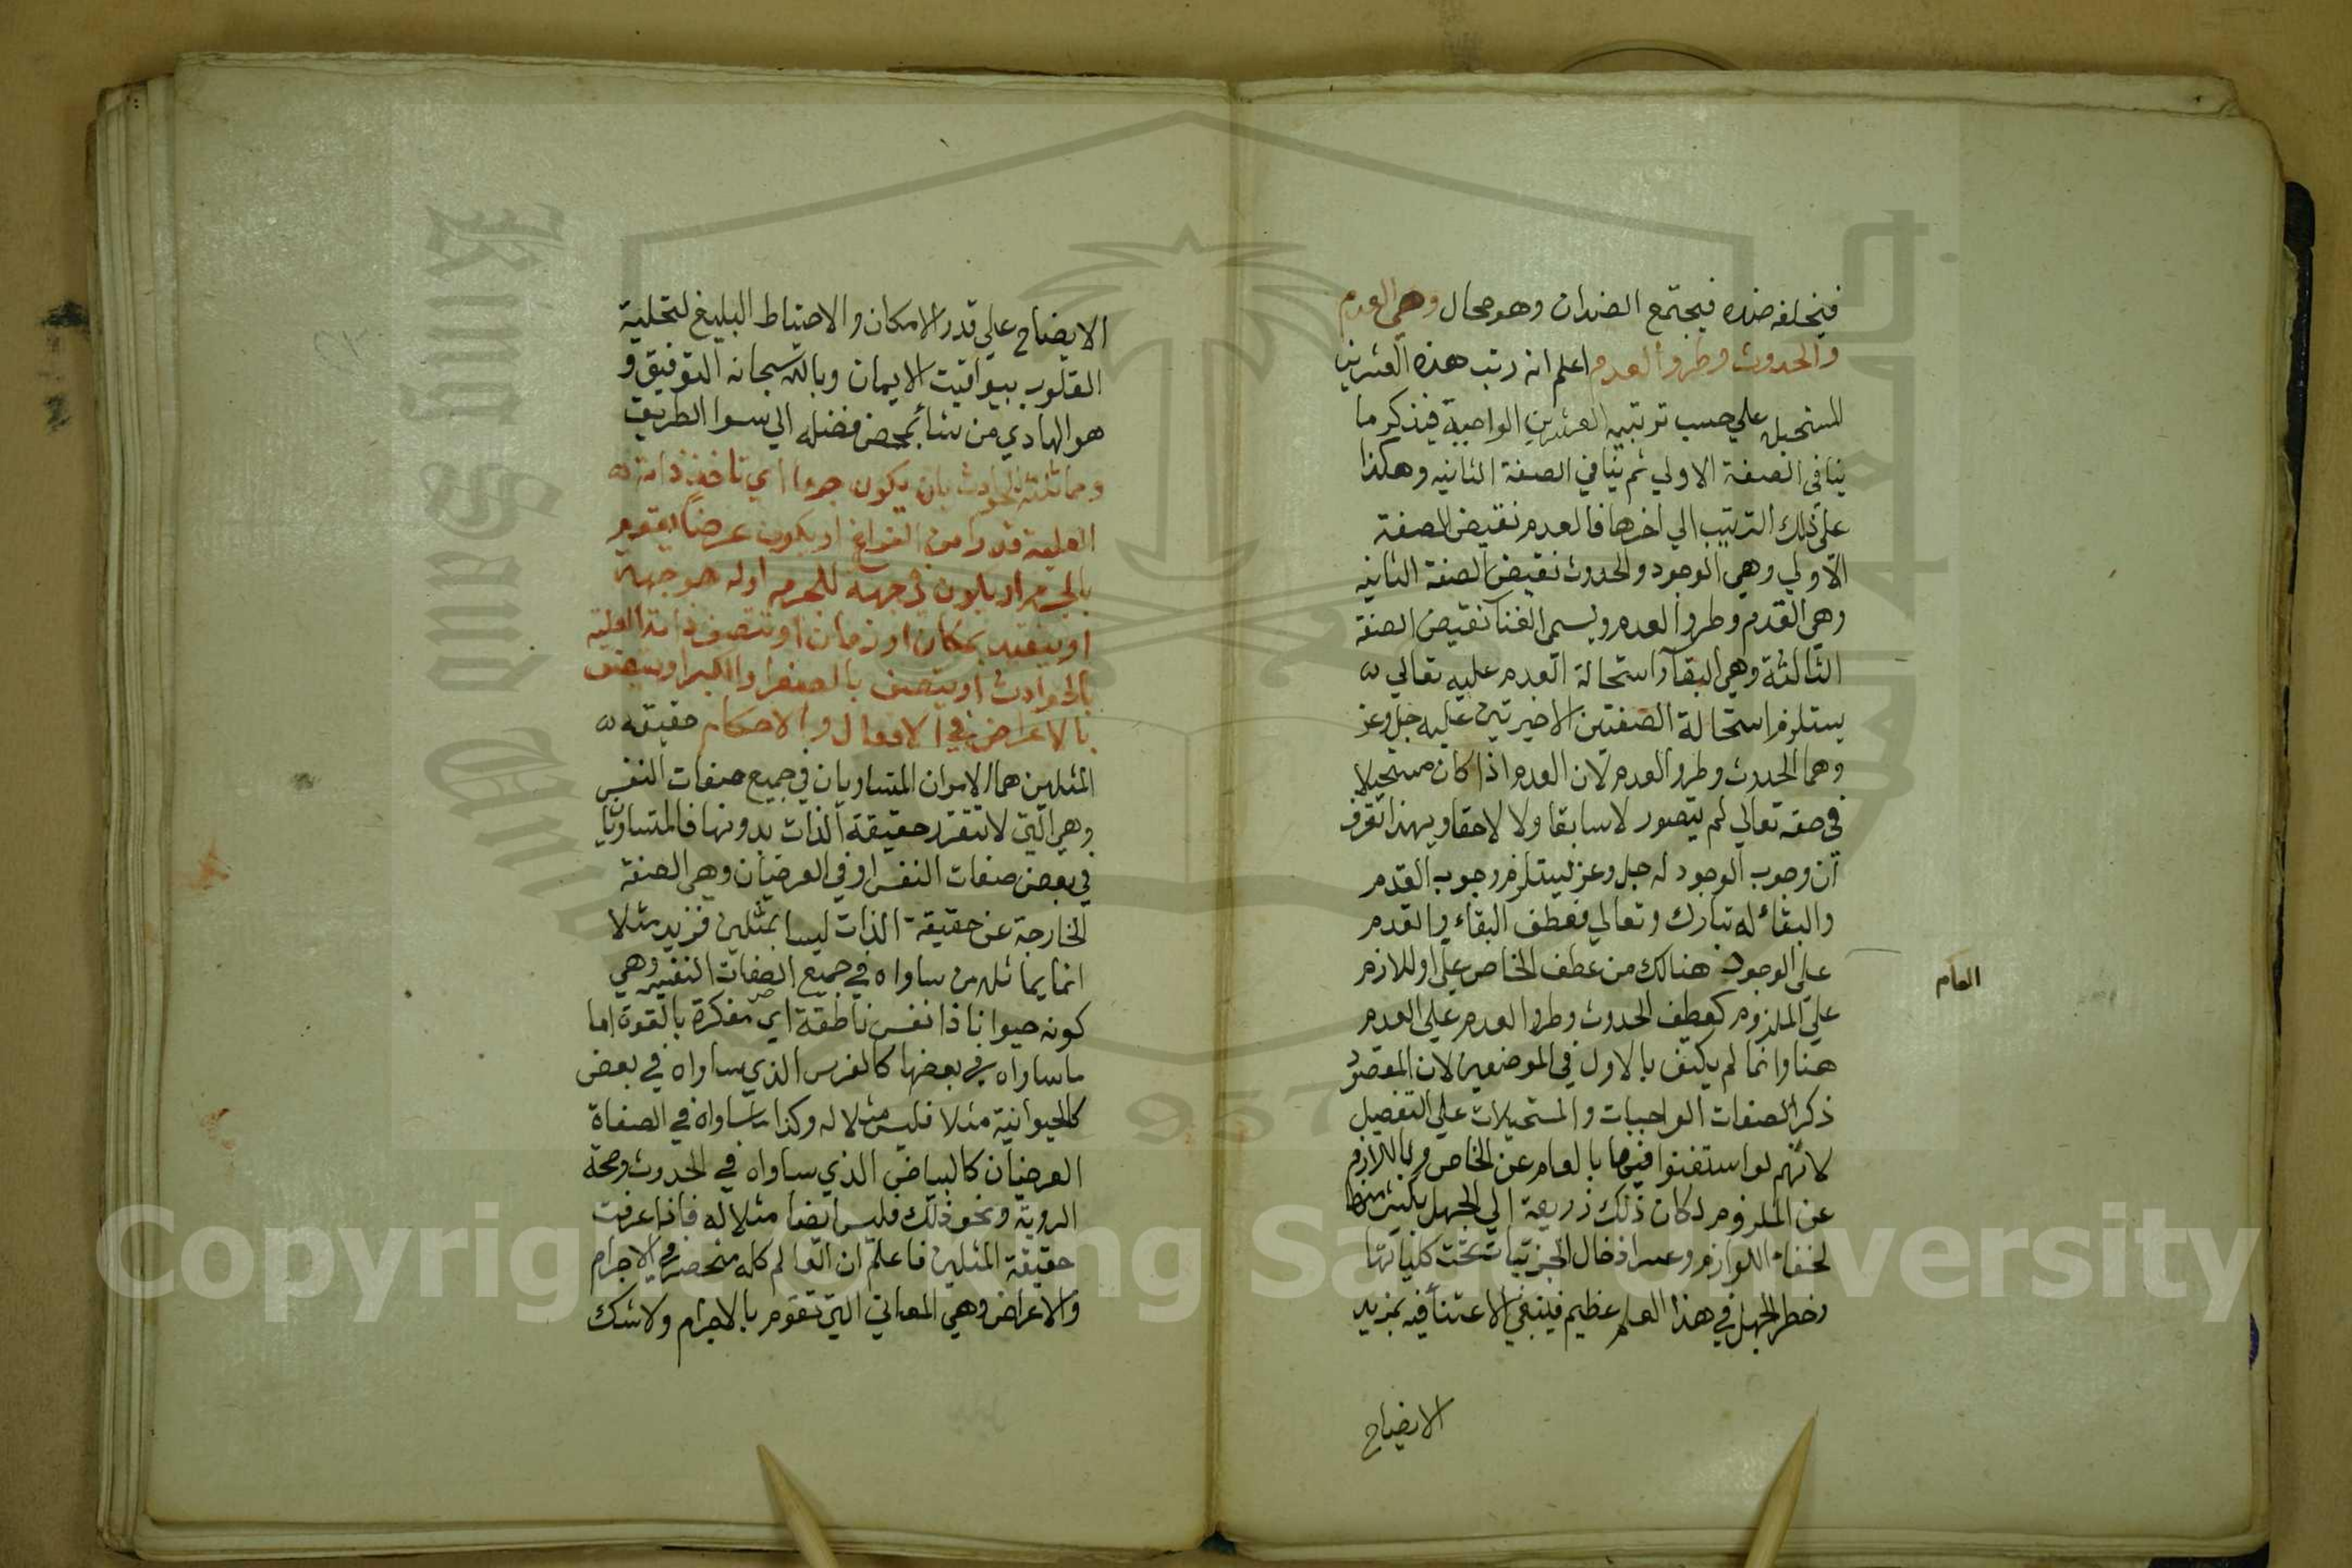 فيخلفه ضده فيجتمع الضدان وهو محال وهي العدم
والحدوث وطروالعدم اعلم انه رتب هذه العشرين
المستحيل علي حسب ترتيب العشرين الواجبة فيذكر ما
ينافي الصفة الاولي ثم ينافي الصفة الثانيه وهكذا
علي ذلك الترتيب الي اخرها فالعدم نقيض الصفة
الاولي وهي الوجود والحدوث نقيض الصفة الثانيه
وهي القدم وطروالعدم ويسمي الفنا نقيض الصفة
الثالثة وهي البقا واستحالة العدم عليه تعالي
يستلزم استحالة الصفتين الاخيرتين عليه جل وعز
وهما الحدوث وطروالعدم لان العدم اذا كان مستحيلا
في حقه تعالي لم يتصور لا سابقا ولا لاحقا وبهذا تعرف
ان وجوب الوجود له جل وعز يستلزم وجوب القدم
والبقاء له تبارك وتعالي فعطف البقاء والقدم
علي الوجود هنالك من عطف الخاص علي او اللازم
العام
علي الملزوم كعطف الحدوث وطروالعدم علي العدم
هنا وانما لم يكتف بالاول في الموضعين لان المقصود
ذكر الصفات الواجبات والمستحيلات علي التفصيل
لانهم لو استغنوا فيها بالعام عن الخاص وباللازم
عن الملزوم لكان ذلك ذريعة الي الجهل بكثير منها
لخفاء اللوازم وعسر ادخال الجزئيات تحت كلياتها
وخطر الجهل في هذا العلم عظيم فينبغي الاعتنا فيه بمزيد
الايضاح
الايضاح علي قدر الامكان والاحتياط البليغ لتحلية
القلوب بيواقيت الايمان وبالله سبحانه التوفيق و
هو الهادي من يشا بمحض فضله الي سوا الطريق
ومماثلته للحوادث بان يكون جرما اي تاخذ ذاته
العليه قدرا من الفراغ او يكون عرضا يقوم
بالجرم او يكون في جهة للجرم او له هو جهة
او يتقيد بمكان او زمان او تتصف ذاته العلية
بالحوادث او يتصف بالصغر او الكبر او يتصف
بالاغراض في الافعال والاحكام حقيقة
المثلين هما الامران المتساويان في جميع صفات النفس
وهي التي لا تتقرر حقيقة الذات بدونها فالمتساويان
في بعض صفات النفس او في العرضيات وهي الصفة
الخارجة عن حقيقة الذات ليسا بمثلين فزيد مثلا
انما يماثله من ساواه في جميع الصفات النفسيه وهي
كونه حيوانا ذا نفس ناطقة اي مفكرة بالقوة اما
ما ساواه في بعضها كالفرس الذي ساواه في بعض
كالحيوانية مثلا فليس مثلا له وكذا ما ساواه في الصفاة
العرضيات كالبياض الذي ساواه في الحدوث وصحة
الروية ونحو ذلك فليس ايضا مثلا له فاذا عرفت
حقيقة المثلين فاعلم ان العالم كله منحصر في الاجرام
والاعراض وهي المعاني التي تقوم بالاجرام ولا شك
King Saud University
1957
Copyright © King Saud University